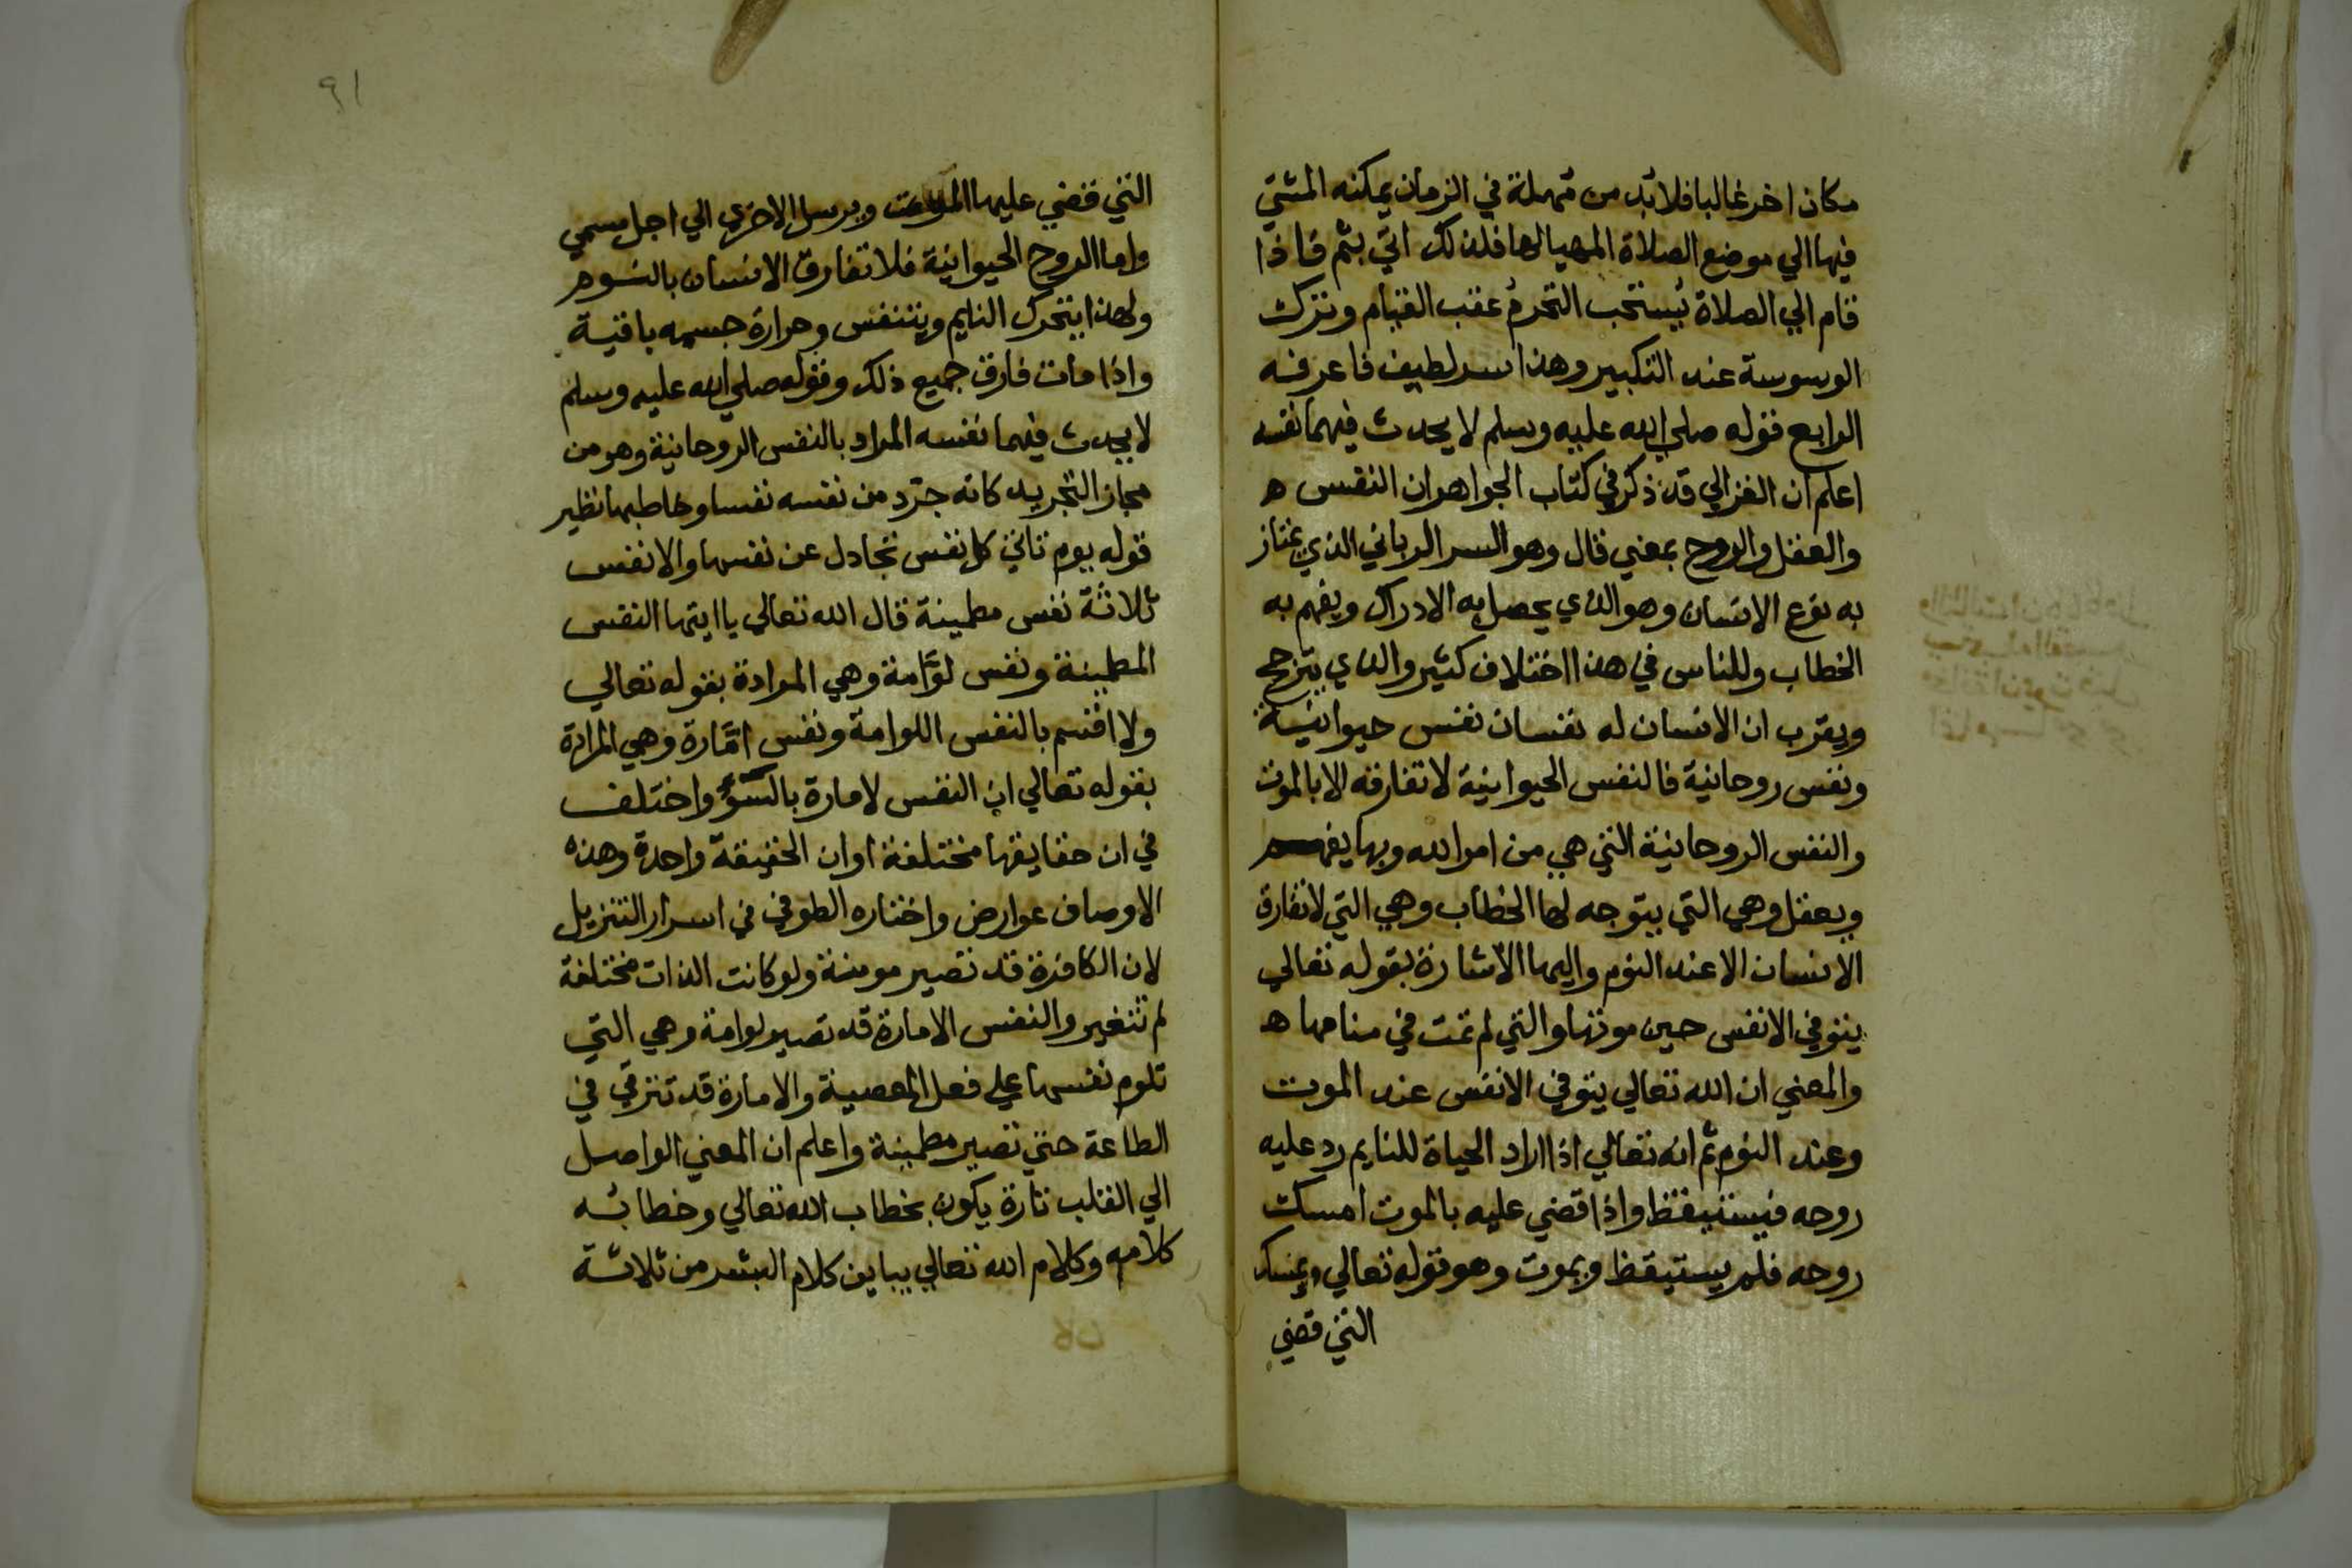 مكان اخر غالبا فلابد من مهلة في الزمان يمكنه المشي
فيها الي موضع الصلاة المهيا لها فلذلك اتي بثم فاذا
قام الي الصلاة يستحب التحرم عقب القيام وترك
الوسوسة عند التكبير وهذا سر لطيف فاعرفه
الرابع قوله صلي الله عليه وسلم لا يحدث فيهما نفسه
اعلم ان الغزالي قد ذكر في كتاب الجواهر ان النفس ه
والعقل والروح بمعني قال وهو السر الرباني الذي يمتاز
به نوع الانسان وهو الذي يحصل به الادراك ويفهم به
الخطاب وللناس في هذا اختلاف كثير والذي يترجح
ويقرب ان الانسان له نفسان نفس حيوانية
ونفس روحانية فالنفس الحيوانية لا تفارقه الا بالموت
والنفس الروحانية التي هي من امر الله وبها يفهم
ويعقل وهي التي يتوجه لها الخطاب وهي التي لا تفارق
الانسان الا عند النوم واليها الاشارة بقوله تعالي
يتوفي الانفس حين موتها والتي لم تمت في منامها ه
والمعني ان الله تعالي يتوفي الانفس عند الموت
وعند النوم ثم انه تعالي اذا اراد الحياة للنايم رد عليه
روحه فيستيقظ واذا قضي عليه بالموت امسك
روحه فلم يستيقظ ويموت وهو قوله تعالي ويمسك
التي قضي
٩١
التي قضي عليها الموت ويرسل الاخري الي اجل مسمي
واما الروح الحيوانية فلا تفارق الانسان بالنوم
ولهذا يتحرك النايم ويتنفس وحرارة جسمه باقية
واذا مات فارق جميع ذلك وقوله صلي الله عليه وسلم
لا يحدث فيهما نفسه المراد بالنفس الروحانية وهو من
مجاز التجريد كانه جرد من نفسه نفسا وخاطبها نظير
قوله يوم تاتي كل نفس تجادل عن نفسها والانفس
ثلاثة نفس مطمينة قال الله تعالي يا ايتها النفس
المطمينة ونفس لوامة وهي المرادة بقوله تعالي
ولا اقسم بالنفس اللوامة ونفس امارة وهي المرادة
بقوله تعالي ان النفس لامارة بالسوء واختلف
في ان حقايقها مختلفة او ان الحقيقة واحدة وهذه
الاوصاف عوارض واختاره الطوفي في اسرار التنزيل
لان الكافرة قد تصير مومنة ولو كانت الذات مختلفة
لم تتغير والنفس الامارة قد تصير لوامة وهي التي
تلوم نفسها علي فعل المعصية والامارة قد تترقي في
الطاعة حتي تصير مطمينة واعلم ان المعني الواصل
الي القلب تارة يكون بخطاب الله تعالي وخطابه
كلامه وكلام الله تعالي يباين كلام البشر من ثلاثة